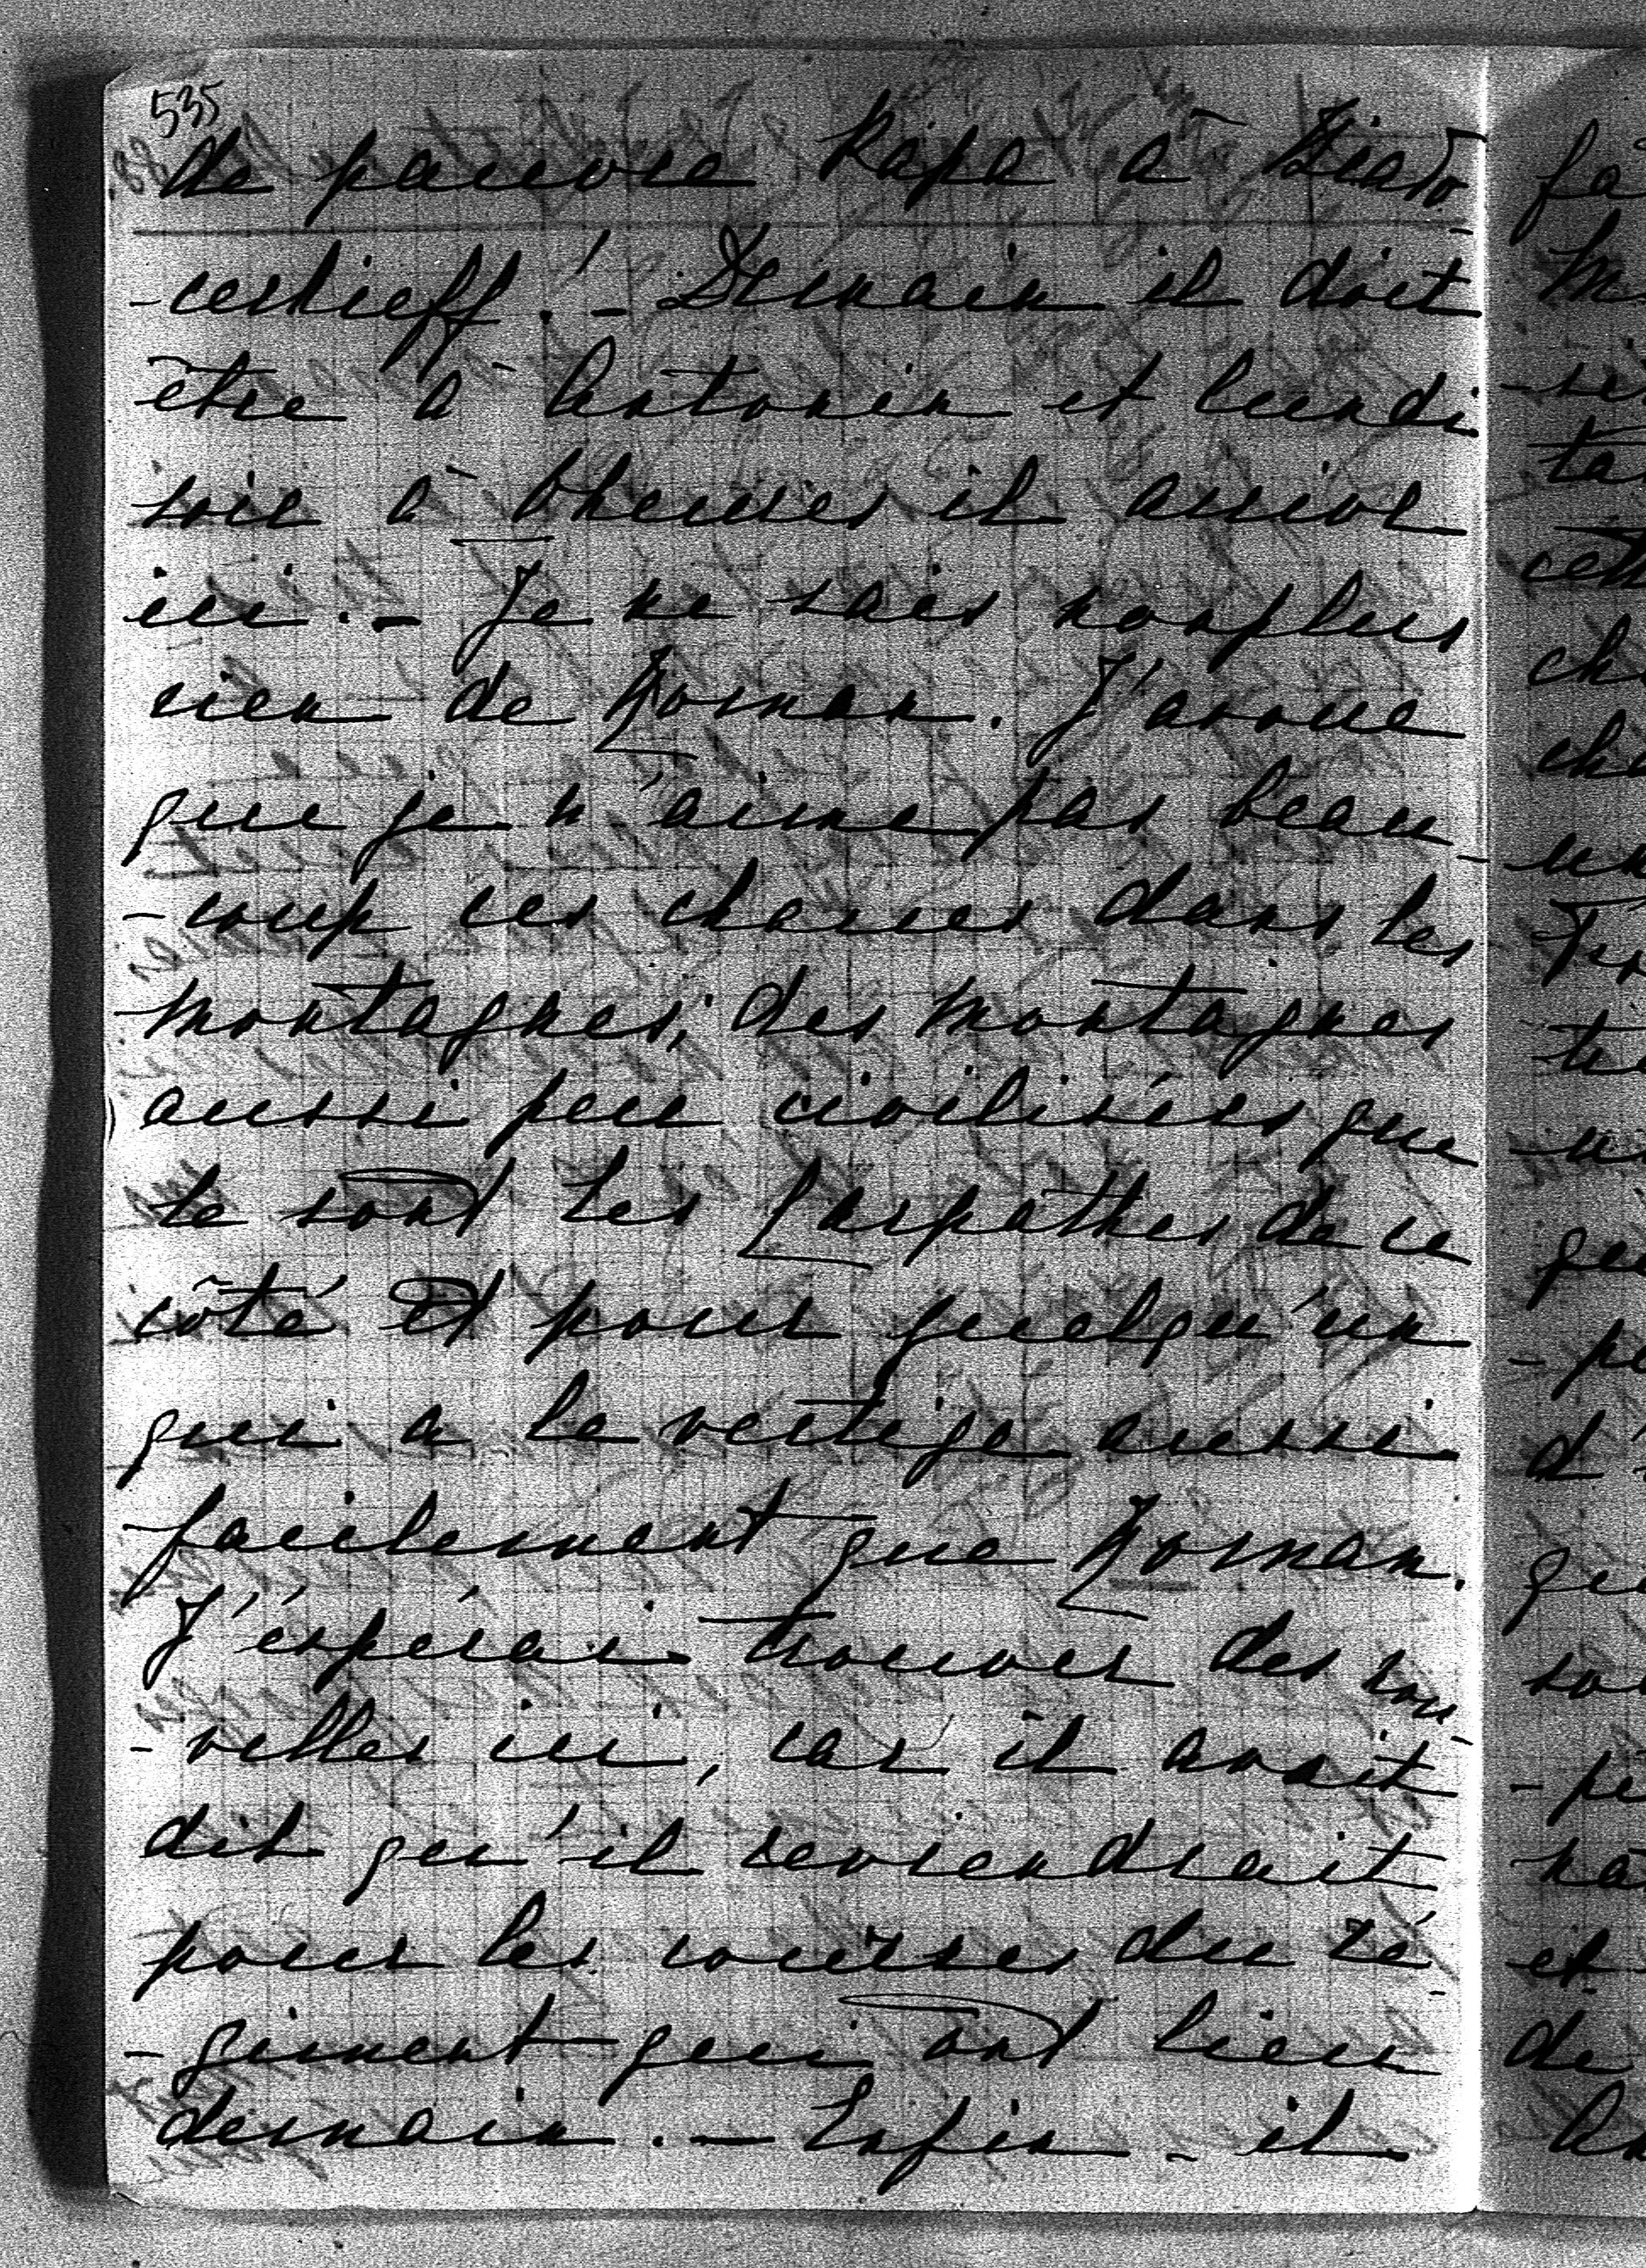 535
de pauvre Papa à
-cerkieff! - Demain il doit
être à Antonin et lundi
soir à heures il arrive
ici. - Je ne sais nonplus
rien de Roman. J'avoue
que je n'aime pas beau-
-coup ces chasses dans les
montagnes; des montagnes
aussi peu civilisées que
le sont les Carpathes de ce
côté et pour quelqu'un
qui a le vertige aussi
facilement que Roman.
J'éspérais trouver des nou-
-velles ici, car il avait
dit qu'il reviendrait
pour les courses du ré-
-giment qui ont lieu
demain. - Enfin - il